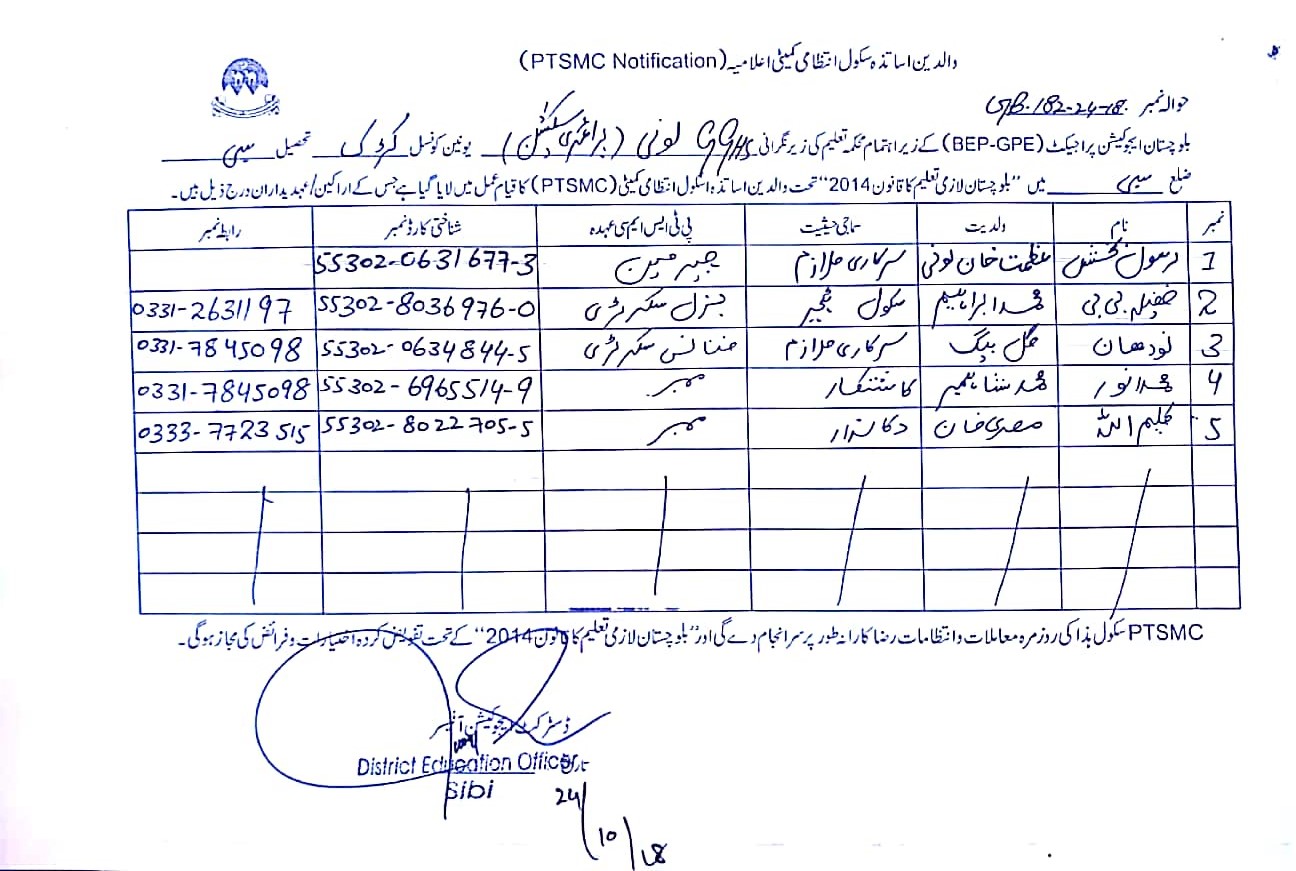 والدین اساتذہ سکول انتظامی کمیٹی اعلامیہ (PTSMC Notification)
حوالہ نمبر GB.182-24-18
بلوچستان ایجوکیشن پراجیکٹ (BEP-GPE) کے زیر اہتمام محکمہ تعلیم کی زیر نگرانی GGHS لونی (پرائمری سیکشن) یونین کونسل کڑک تحصیل سبی
ضلع سبی میں "بلوچستان لازمی تعلیم کا قانون 2014" تحت والدین اساتذہ اسکول انتظامی کمیٹی (PTSMC) کا قیام عمل میں لایا گیا ہے جس کے اراکین/عہدیداران درج ذیل ہیں۔
نمبر نام ولدیت سماجی حیثیت پی ٹی ایس ایم سی عہدہ شناختی کارڈ نمبر رابطہ نمبر
1 رسول بخش عظمت خان لونی سرکاری ملازم چیرمین 55302-0631677-3
2 بی بی محمد ابراہیم سکول ٹیچر جنرل سکرٹری 55302-8036976-0 0331-2631197
3 نودھان گل بیگ سرکاری ملازم فنانس سکرٹری 55302-0634844-5 0331-7845098
4 محمد انور محمد کاشتکار ممبر 55302-6965514-9 0331-7845098
5 کلیم اللہ مصری خان دکاندار ممبر 55302-8022705-5 0333-7723515
PTSMC سکول ہذا کی روزمرہ معاملات و انتظامات رضا کارانہ طور پر سرانجام دے گی اور "بلوچستان لازمی تعلیم کا قانون 2014" کے تحت تفویض کردہ اختیارات و فرائض کی مجاز ہوگی۔
ڈسٹرکٹ ایجوکیشن آفیسر
District Education Officer
Sibi
24/10/18